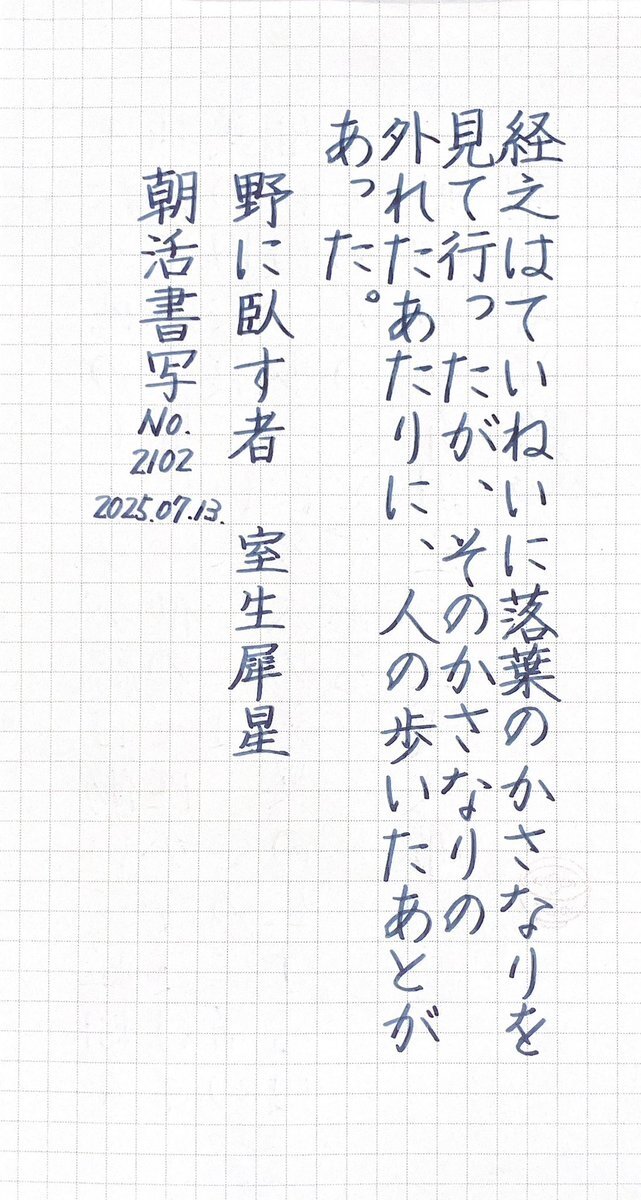 経えはていねいに落葉のかさなりを
見て行ったが、そのかさなりの
外れたあたりに、人の歩いたあとが
あった。
野に臥す者 室生犀星
朝活書写
No.
2102
2025.07.13.